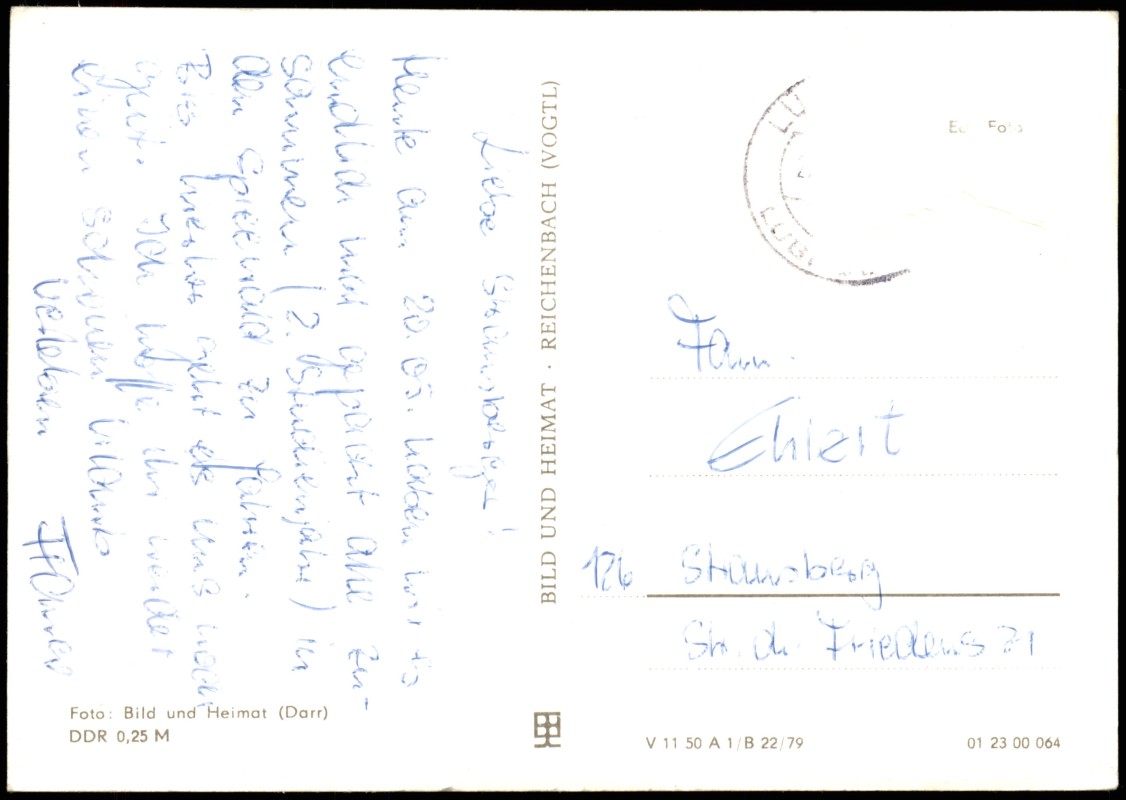 Liebe Strausberger!
Heute am 20.05. haben wir es
endlich mal gepackt alle zu-
sammen (2. Studienjahr) in
den Spreewald zu fahren.
Bis hierher geht es uns noch
gut. Ich hoffe ihr verlebt
einen schönen Urlaub
verleben
BILD UND HEIMAT · REICHENBACH (VOGTL)
Foto: Bild und Heimat (Darr)
DDR 0,25 M
Echt Foto
Fam.
Ehlert
126 Strausberg
Str. d. Friedens 21
V 11 50 A 1/B 22/79
01 23 00 064